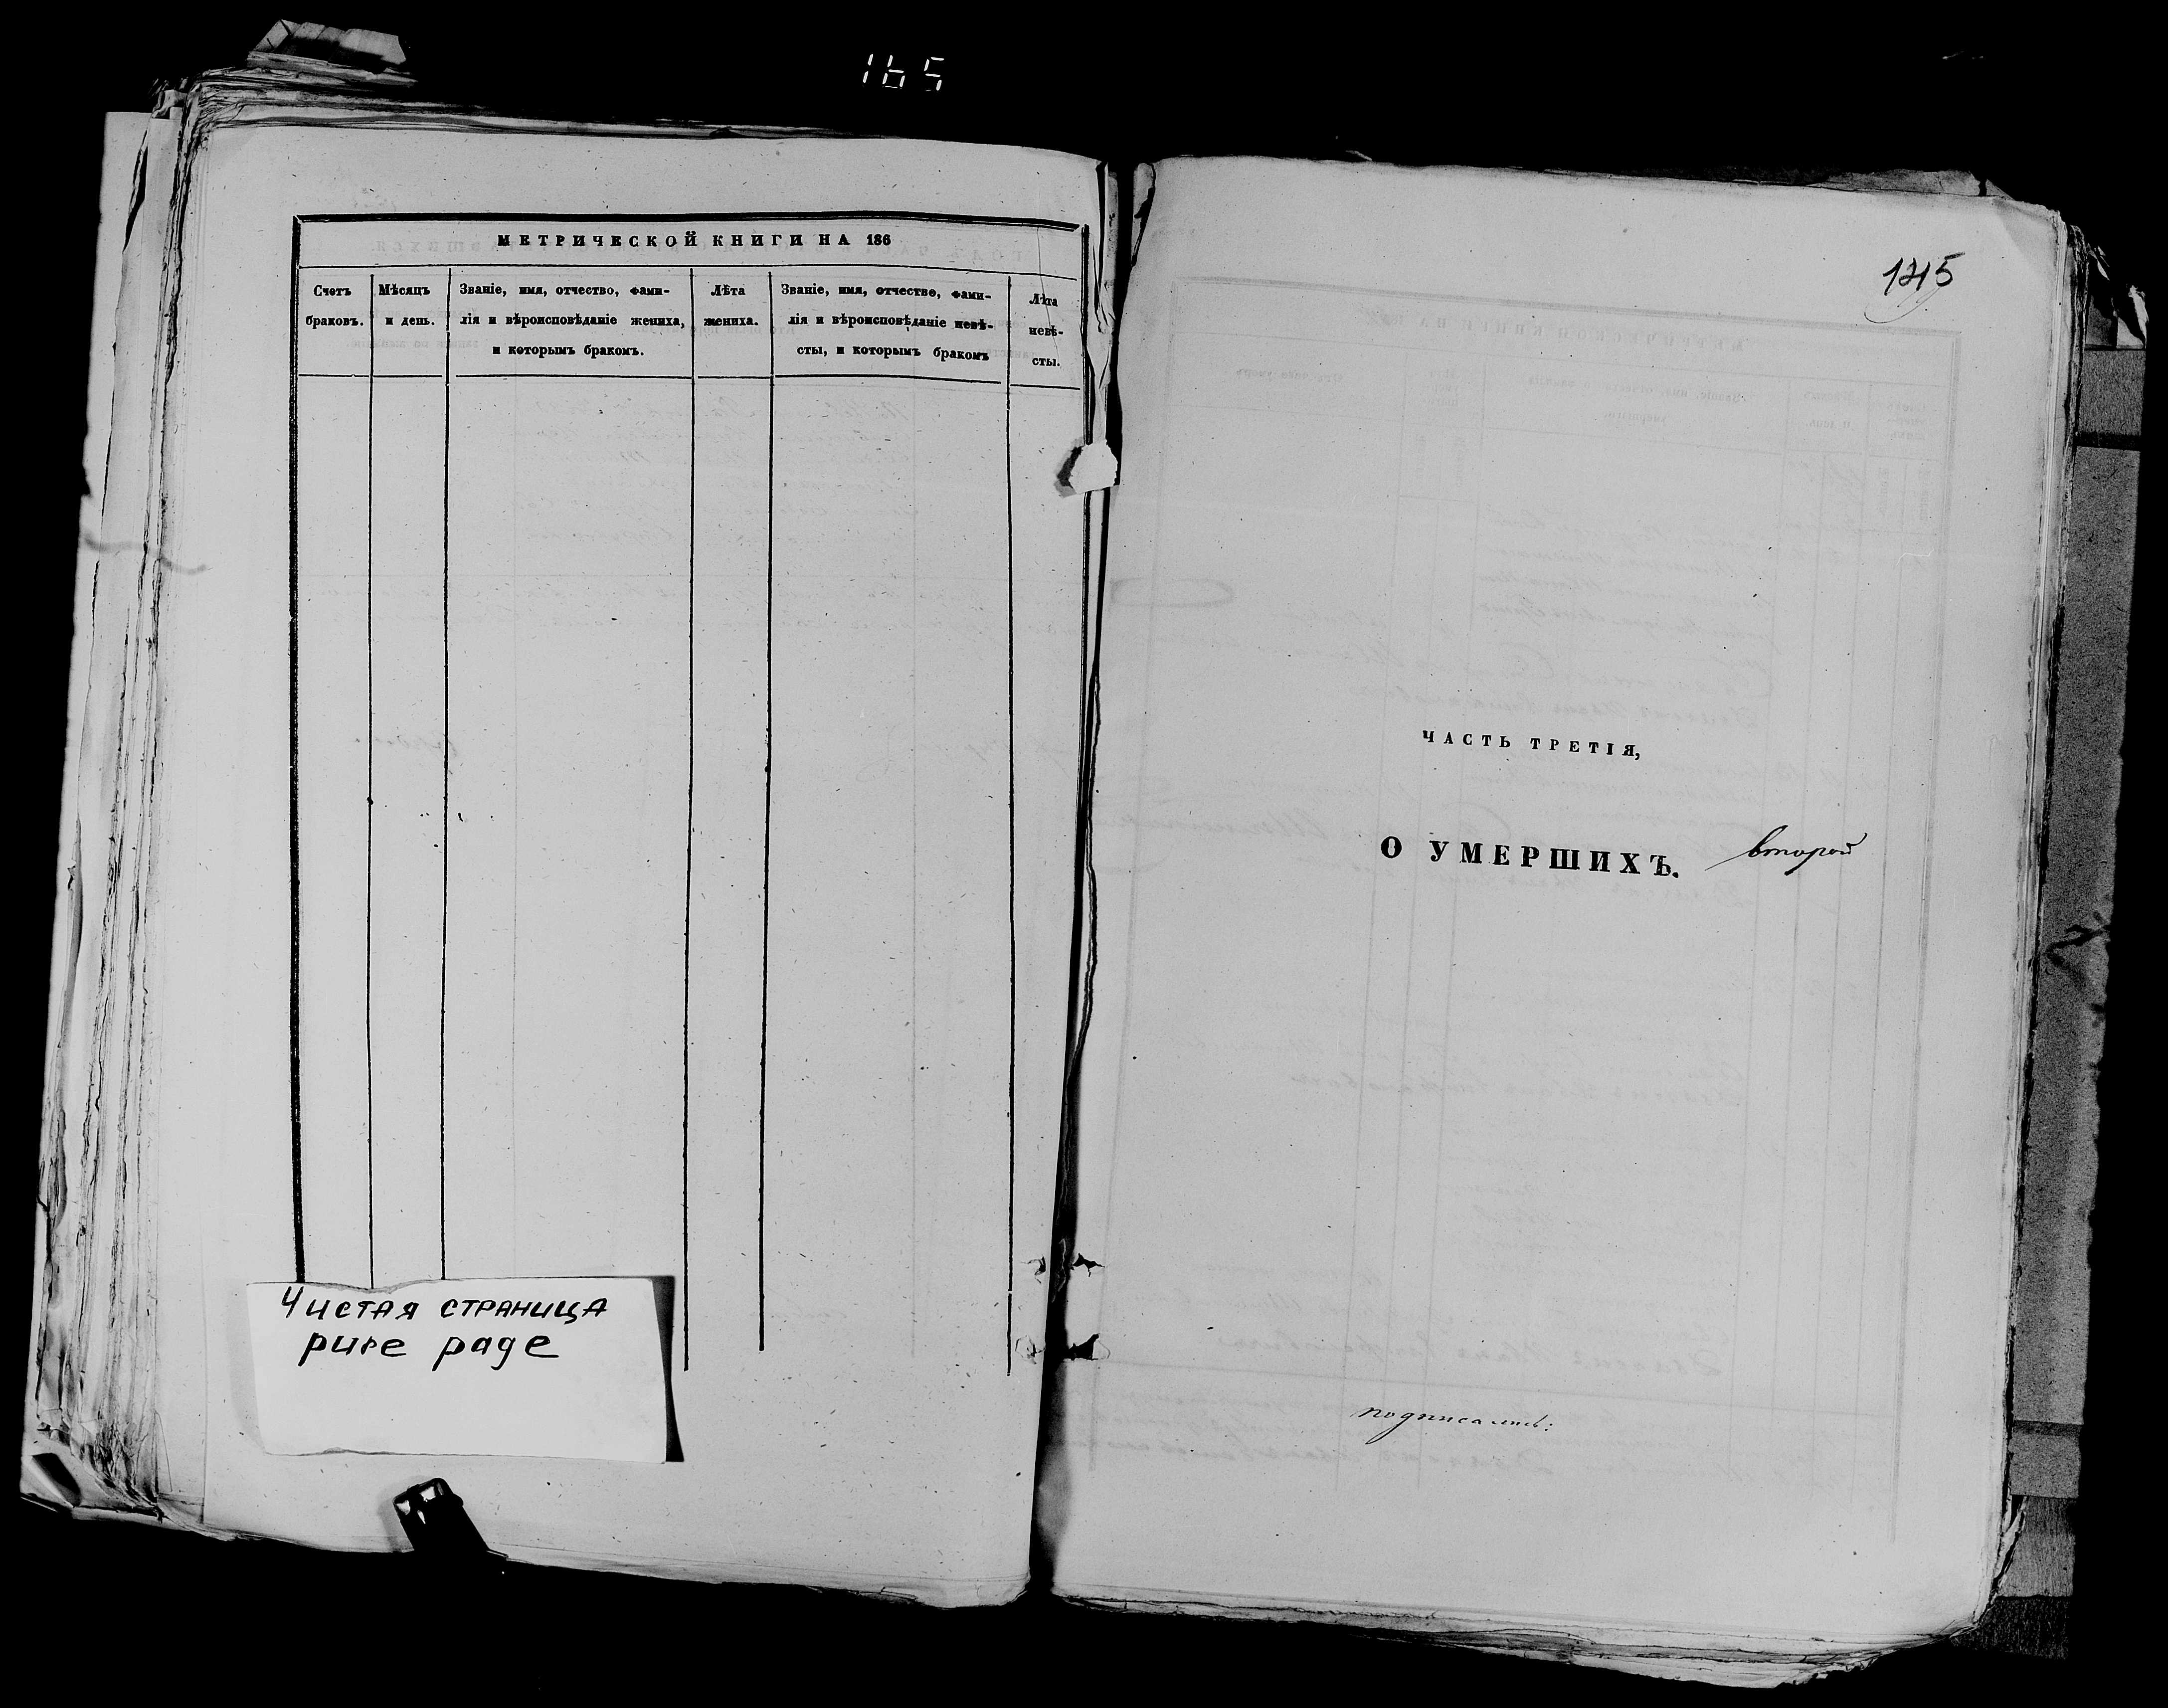 165
МЕТРИЧЕСКОЙ КНИГИ НА 186
Счетъ
браковъ.
Мѣсяцъ
и день.
Званіе, имя, отчество, фами-
лія и вѣроисповѣданіе жениха,
и которымъ бракомъ.
Лѣта
жениха.
Званіе, имя, отчество, фами-
лія и вѣроисповѣданіе невѣ-
сты, и которымъ бракомъ
Лѣта
невѣ-
сты.
Чистая страница
pure page
145
ЧАСТЬ ТРЕТІЯ,
О УМЕРШИХЪ.
второй
подписались: